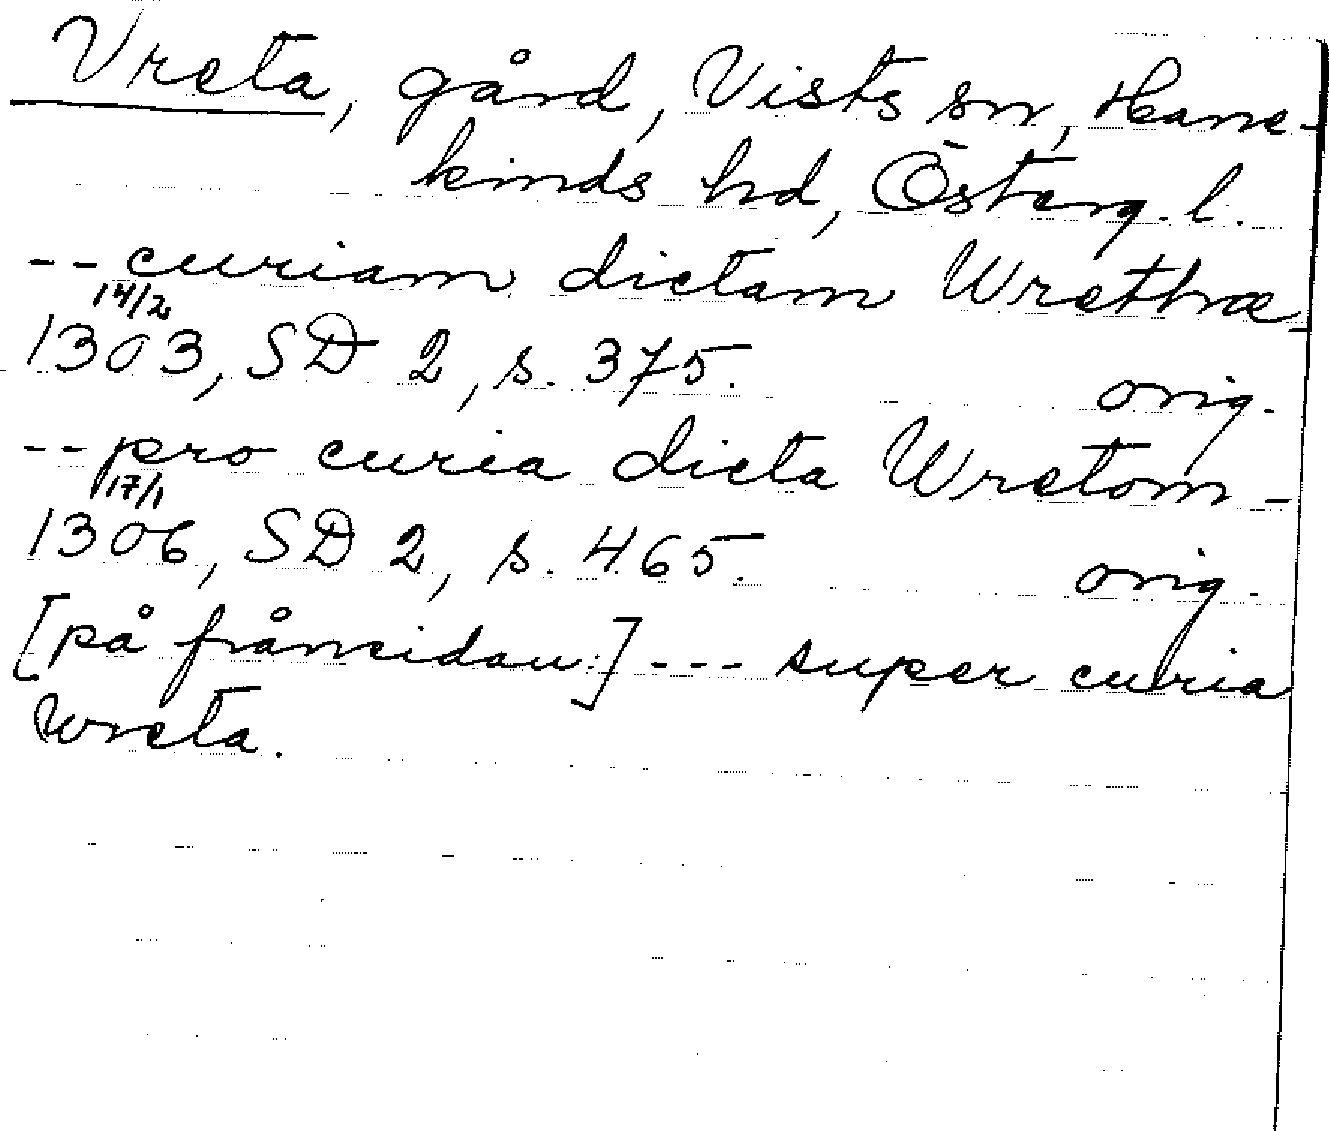 Vreta, gård, Vists sn, Hane-
kinds hd, Österg. l.
-- curiam dictam Wrethræ
14/2
1303, SD 2, s. 375. orig.
-- pro curia dicta Wretom -
17/1
1306, SD 2, s. 465. orig.
[på frånsidan:] --- super curia
wreta.